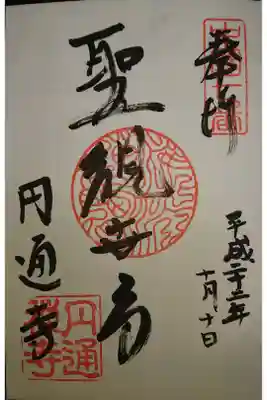 奉拝
平成二十二年
十月十日
聖観世音
円通寺
円通寺